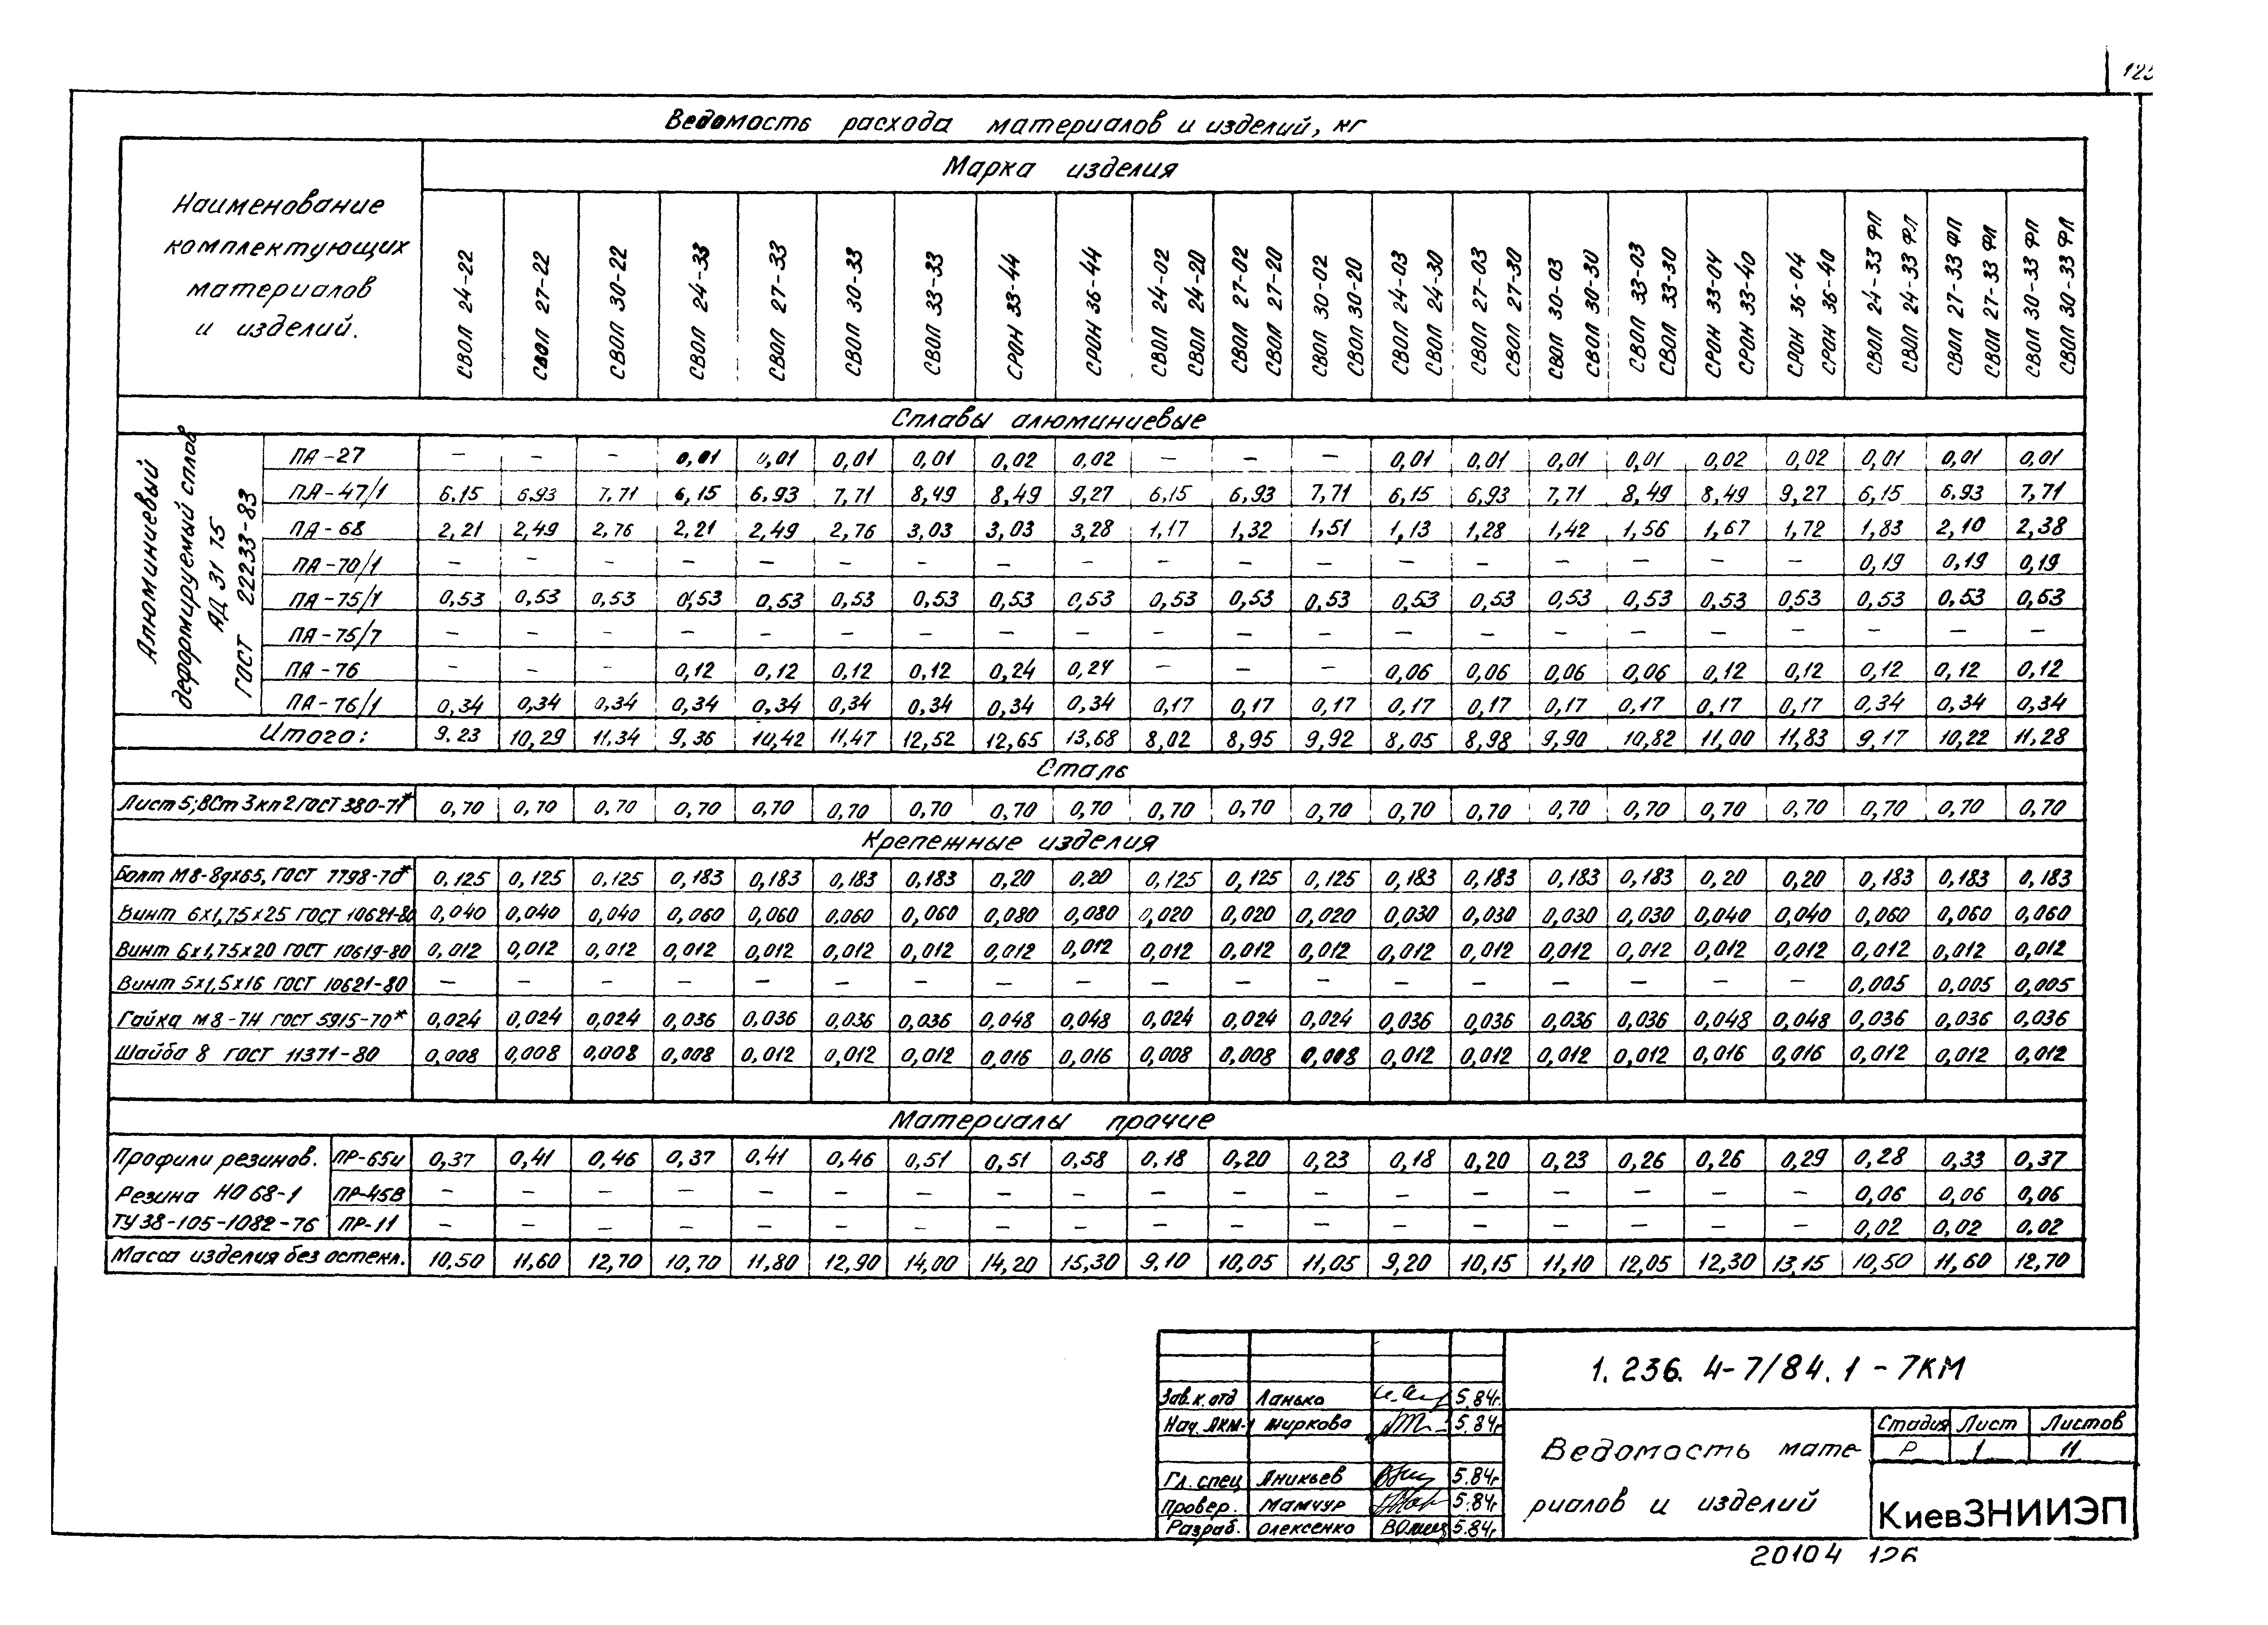 125
Ведомость расхода материалов и изделий, кг
Наименование комплектующих материалов и изделий.
Марка изделия
СВОЛ 24-22
СВОЛ 27-22
СВОЛ 30-22
СВОЛ 24-33
СВОЛ 27-33
СВОЛ 30-33
СВОЛ 33-33
СРОН 33-44
СРОН 36-44
СВОЛ 24-02 СВОЛ 24-20
СВОЛ 27-02 СВОЛ 27-20
СВОЛ 30-02 СВОЛ 30-20
СВОЛ 24-03 СВОЛ 24-30
СВОЛ 27-03 СВОЛ 27-30
СВОЛ 30-03 СВОЛ 30-30
СВОЛ 33-03 СВОЛ 33-30
СРОН 33-04 СРОН 33-40
СРОН 36-04 СРОН 36-40
СВОЛ 24-33 ФП СВОЛ 24-33 ФЛ
СВОЛ 27-33 ФП СВОЛ 27-33 ФЛ
СВОЛ 30-33 ФП СВОЛ 30-33 ФЛ
Сплавы алюминиевые
Алюминиевый деформируемый сплав АД 31 Т5 ГОСТ 22233-83
ПА-27 – – – 0,01 0,01 0,01 0,01 0,02 0,02 – – – 0,01 0,01 0,01 0,01 0,02 0,02 0,01 0,01 0,01
ПА-47/1 6,15 6,93 7,71 6,15 6,93 7,71 8,49 8,49 9,27 6,15 6,93 7,71 6,15 6,93 7,71 8,49 8,49 9,27 6,15 6,93 7,71
ПА-68 2,21 2,49 2,76 2,21 2,49 2,76 3,03 3,03 3,28 1,17 1,32 1,51 1,13 1,28 1,42 1,56 1,67 1,72 1,83 2,10 2,38
ПА-70/1 – – – – – – – – – – – – – – – – – – 0,19 0,19 0,19
ПА-75/1 0,53 0,53 0,53 0,53 0,53 0,53 0,53 0,53 0,53 0,53 0,53 0,53 0,53 0,53 0,53 0,53 0,53 0,53 0,53 0,53 0,63
ПА-75/7 – – – – – – – – – – – – – – – – – – – – –
ПА-76 – – – 0,12 0,12 0,12 0,12 0,24 0,24 – – – 0,06 0,06 0,06 0,06 0,12 0,12 0,12 0,12 0,12
ПА-76/1 0,34 0,34 0,34 0,34 0,34 0,34 0,34 0,34 0,34 0,17 0,17 0,17 0,17 0,17 0,17 0,17 0,17 0,17 0,34 0,34 0,34
Итого: 9.23 10,29 11.34 9,36 10,42 11,47 12,52 12,65 13,68 8,02 8,95 9,92 8,05 8,98 9,90 10,82 11,00 11,83 9,17 10,22 11,28
Сталь
Лист 5; ВСт 3 кп 2 ГОСТ 380-71* 0,70 0,70 0,70 0,70 0,70 0,70 0,70 0,70 0,70 0,70 0,70 0,70 0,70 0,70 0,70 0,70 0,70 0,70 0,70 0,70 0,70
Крепежные изделия
Болт М8-8gх65, ГОСТ 7798-70* 0,125 0,125 0,125 0,183 0,183 0,183 0,183 0,20 0,20 0,125 0,125 0,125 0,183 0,183 0,183 0,183 0,20 0,20 0,183 0,183 0,183
Винт 6х1,75х25 ГОСТ 10621-80 0,040 0,040 0,040 0,060 0,060 0,060 0,060 0,080 0,080 0,020 0,020 0,020 0,030 0,030 0,030 0,030 0,040 0,040 0,060 0,060 0,060
Винт 6х1,75х20 ГОСТ 10619-80 0,012 0,012 0,012 0,012 0,012 0,012 0,012 0,012 0,012 0,012 0,012 0,012 0,012 0,012 0,012 0,012 0,012 0,012 0,012 0,012 0,012
Винт 5х1,5х16 ГОСТ 10621-80 – – – – – – – – – – – – – – – – – – 0,005 0,005 0,005
Гайка М8-7Н ГОСТ 5915-70* 0,024 0,024 0,024 0,036 0,036 0,036 0,036 0,048 0,048 0,024 0,024 0,024 0,036 0,036 0,036 0,036 0,048 0,048 0,036 0,036 0,036
Шайба 8 ГОСТ 11371-80 0,008 0,008 0,008 0,008 0,012 0,012 0,012 0,016 0,016 0,008 0,008 0,008 0,012 0,012 0,012 0,012 0,016 0,016 0,012 0,012 0,012
Материалы прочие
Профили резинов. ПР-65и 0,37 0,41 0,46 0,37 0.41 0,46 0,51 0,51 0,58 0,18 0,20 0,23 0,18 0,20 0,23 0,26 0,26 0,29 0,28 0,33 0,37
Резина НО 68-1 ПР-45В – – – – – – – – – – – – – – – – – – 0,06 0,06 0,06
ТУ 38-105-1082-76 ПР-11 – – – – – – – – – – – – – – – – – – 0,02 0,02 0,02
Масса изделия без остекл. 10,50 11,60 12,70 10,70 11,80 12,90 14,00 14,20 15,30 9,10 10,05 11,05 9,20 10,15 11,10 12,05 12,30 13,15 10,50 11,60 12,70
1.236.4-7/84.1-7КМ
Зав.к.отд Ланько 5.84г.
Нач. АКМ-1 Жиркова 5.84г
Гл. спец Аникьев 5.84г
Провер. Мамчур 5.84г
Разраб. Олексенко 5.84г.
Ведомость мате-
риалов и изделий
Стадия Лист Листов
Р 1 11
КиевЗНИИЭП
20104 126